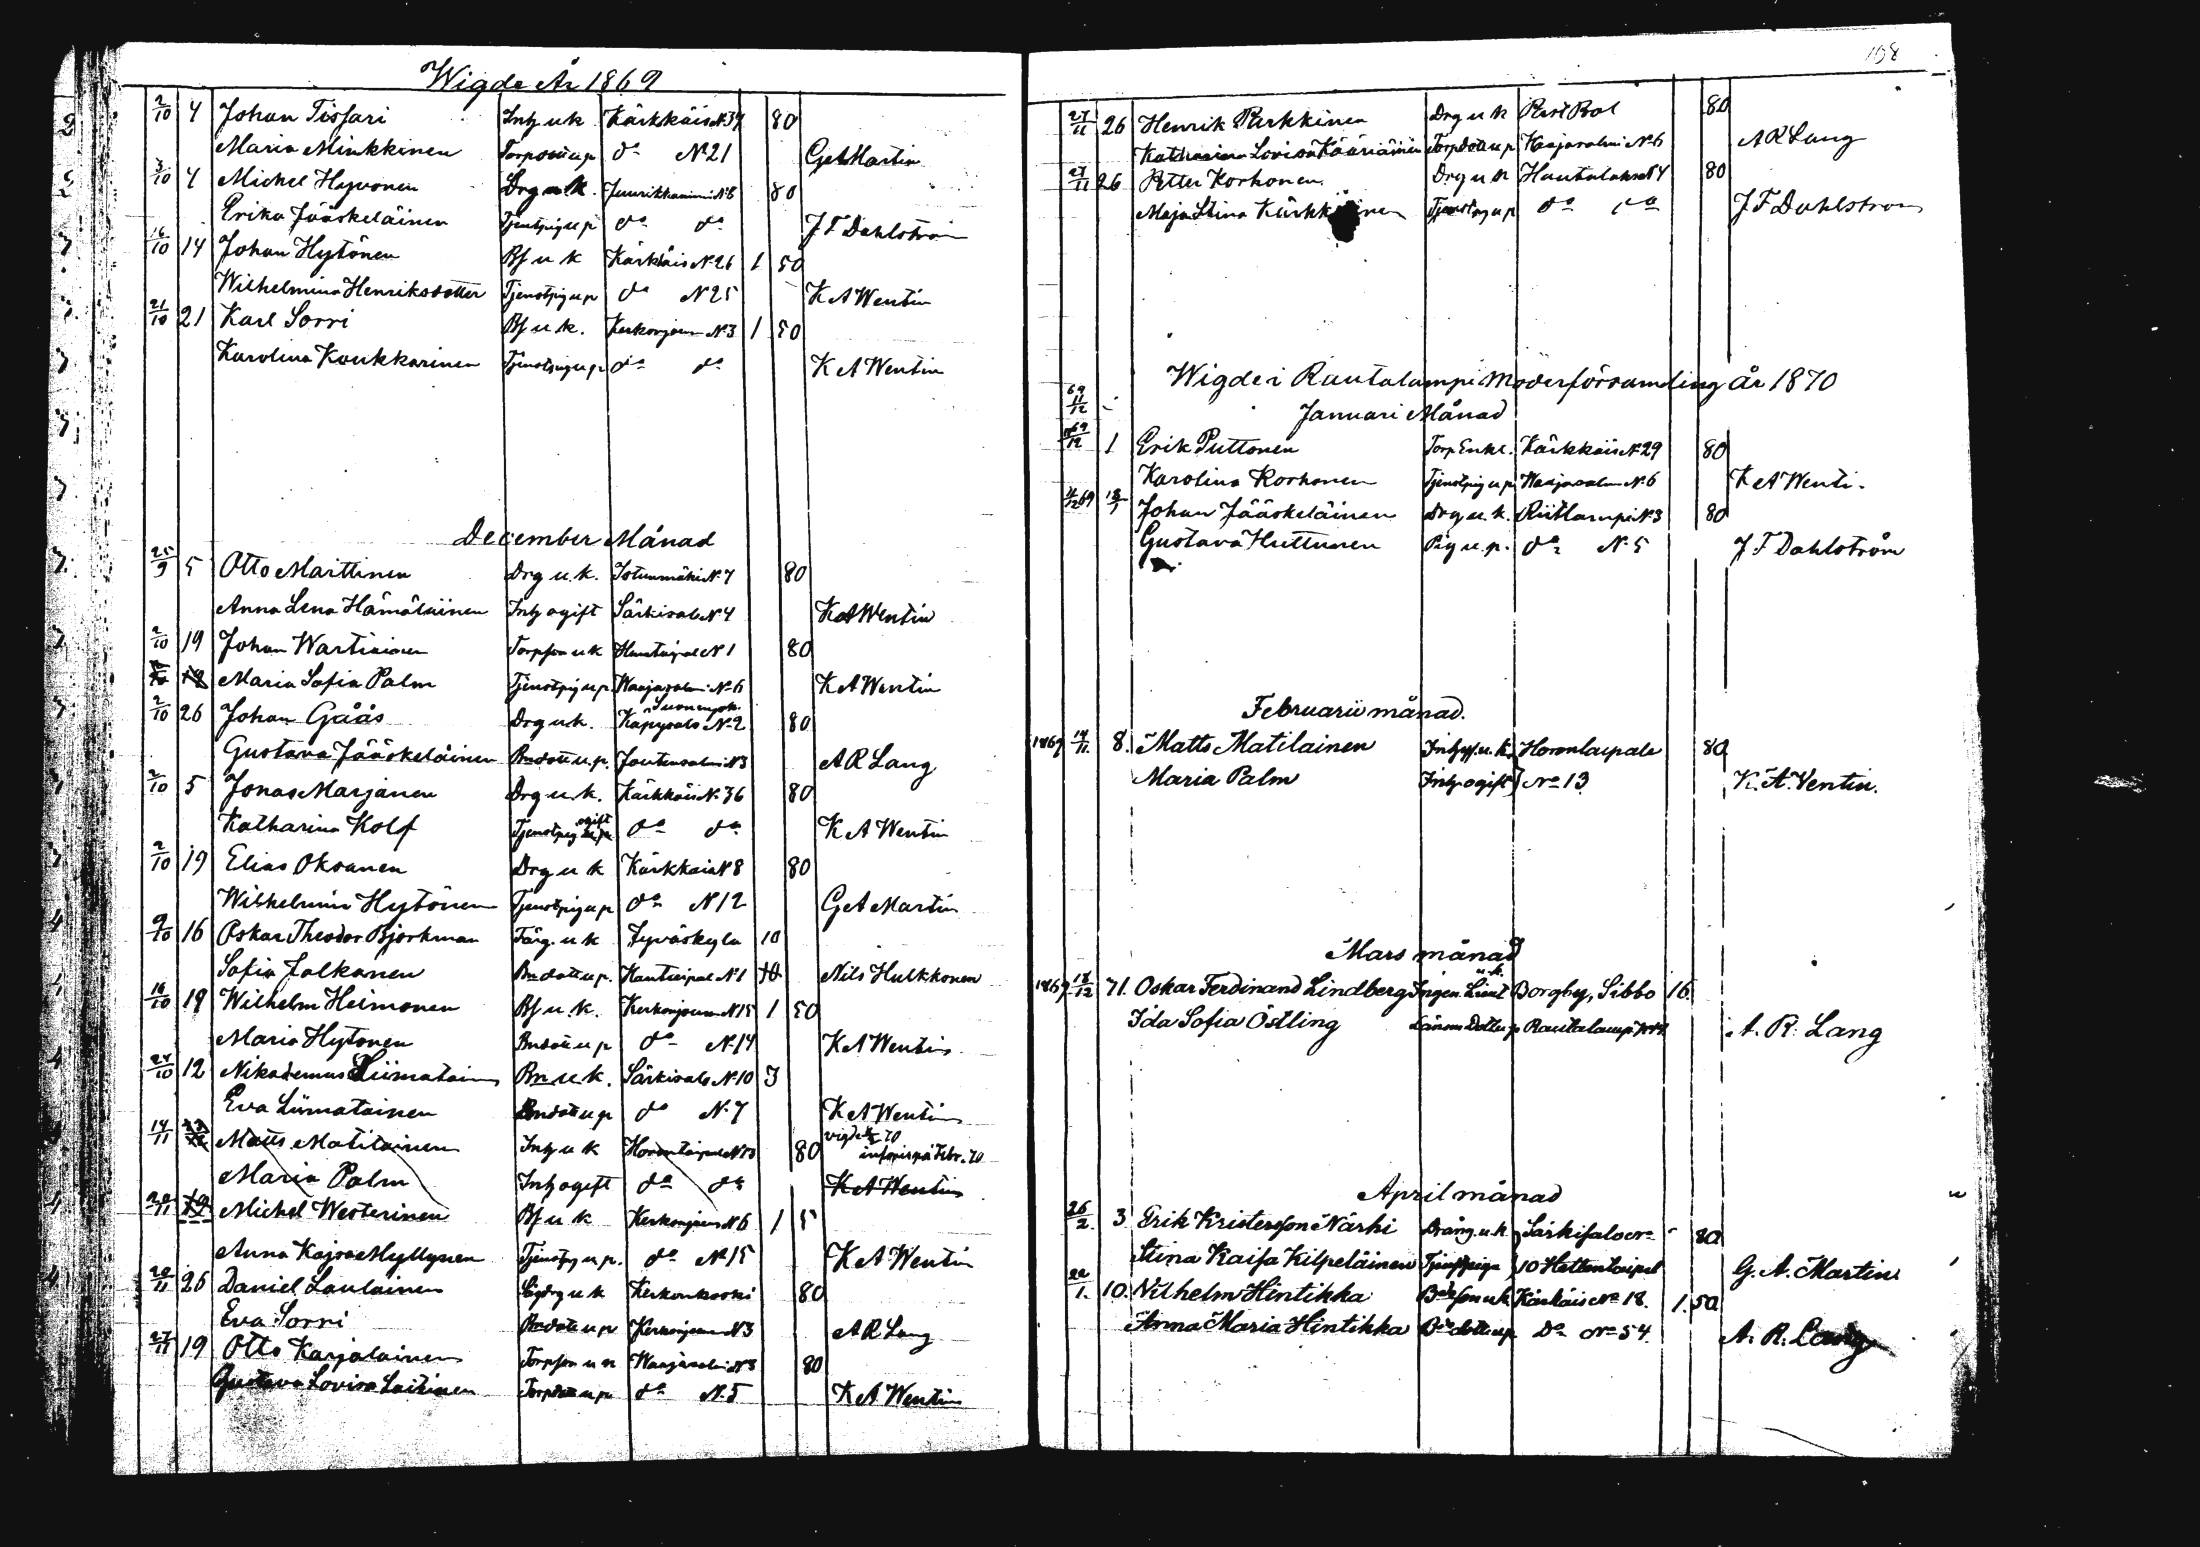 Wigde År 1869
2/10 4 Johan Tissari Inh u k Kärkkäis N 34 80
Maria Minkkinen Torpdott u p do N 21 G A Martin
3/10 4 Michel Hyvonen Drg u k. N 8 80
Erika Jääskeläinen Tjenstpig u p do do J F Dahlström
16/10 14 Johan Hytönen Bf u k Kärkkäis N 26 1 50
Wilhelmina Henriksdotter Tjenstpig u p do N 25 K A Wentin
21/10 21 Karl Sorri Bf u k. Kerkonjoen N 3 1 50
Karolina Koukkarinen Tjenstpig u p do do K A Wentin
December Månad
25/9 5 Otto Marttinen Drg u. k. Istunmäki N 7 80
Anna Lena Hämäläinen Inh ogift Särkisalo N 4 K A Wentin
2/10 19 Johan Wartiainen Torpson u k N 1 80
Maria Sofia Palm Tjenstpig u p. Waajasalmi N 6 K A Wentin
2/10 26 Johan Gåås Drg u k. Käpysalo N 2 80
Gustava Jääskeläinen Bndott u. p. Jouhensalmi N 3 A R Lang
2/10 5 Jonas Marjanen Drg u. k. Kärkkäis N 36 80
Katharina Kolf Tjenstpig ogift do do K A Wentin
2/10 19 Elias Oksanen Drg u k Kärkkäis N 8 80
Wilhelmina Hytönen Tjenstpig u p do N 12 G A Martin
9/10 16 Oskar Theodor Björkman Färg. u k Jyväskyla 10
Sofia Jalkanen Bndott u p. N 1 10 Nils Hulkkonen
16/10 19 Wilhelm Heimonen Bf u. k. Kerkonjoen N 15 1 50
Maria Hytonen Bndott u p do N 14 K A Wentin
24/10 12 Nikodemus Liimatainen Bn u. k. Särkisalo N 10 3
Eva Liimatainen Bndott u p do N. 7 K A Wentin
14/11 Matts Matilainen Inh u k Horontaipale N 13 80 70
Maria Palm Inh ogift do do K A Wentin
20/11 19 Michel Westerinen Bf u k Kerkonjoen N 6 1 5
Anna Kajsa Myllynen Tjenstpig u p. do N 15 K A Wentin
20/11 26 Daniel Laulainen u k Kerkonkoski 80
Eva Sorri Bndott u p Kerkonjoen N 3 A R Lang
27/11 19 Otto Karjalainen Torpson u k Waajasalmi N 3 80
Gustava Lovisa Laitinen Torpdott u p do N. 5 K A Wentin
108
27/11 26 Henrik Parkkinen Drg u k Prest Bol 80
Katharina Lovisa Kääriäinen Torpdott u p Waajasalmi N 6 A R Lang
27/11 26 Petter Korhonen Drg u k Hautolaks N 4 80
Maja Stina Kärkkäinen Tjenstpig u p do do J F Dahlstrom
Wigde i Rautalampi Moderförsamling år 1870
Januari Månad
1 Erik Puttonen Torp Enkl. Kärkkäis N 29 80
Karolina Korhonen Tjenstpig u p Waajasalmi N 6 K A Wenti.
Johan Jääskeläinen Drg u. k. Riitlampi N 3 80
Gustava Huttunen Pig u. p. do N. 5 J F Dahlström
Februarii månad.
1869 14/11 8. Matts Matilainen Inhyss. u. k. Horontaipale 80
Maria Palm Inh. ogift No 13 K. A. Ventin.
Mars månad
1869 18/12 71. Oskar Ferdinand Lindberg Ingen. Lieut u. k. Borgby, Sibbo 16.
Ida Sofia Östling Länsm. Dotter Rautalampi A. R. Lang
April månad
26/2. 3 Erik Kristersson Närhi Dräng. u. k. Särkisalo No 80
Stina Kaisa Kilpeläinen Tjenstpiga 10 Hettontaipal G. A. Martin
22/1. 10. Vilhelm Hintikka Bdeson u k. Kärkäis No 18. 1. 50
Anna Maria Hintikka Bdedott u p Do No 54. A. R. Lang